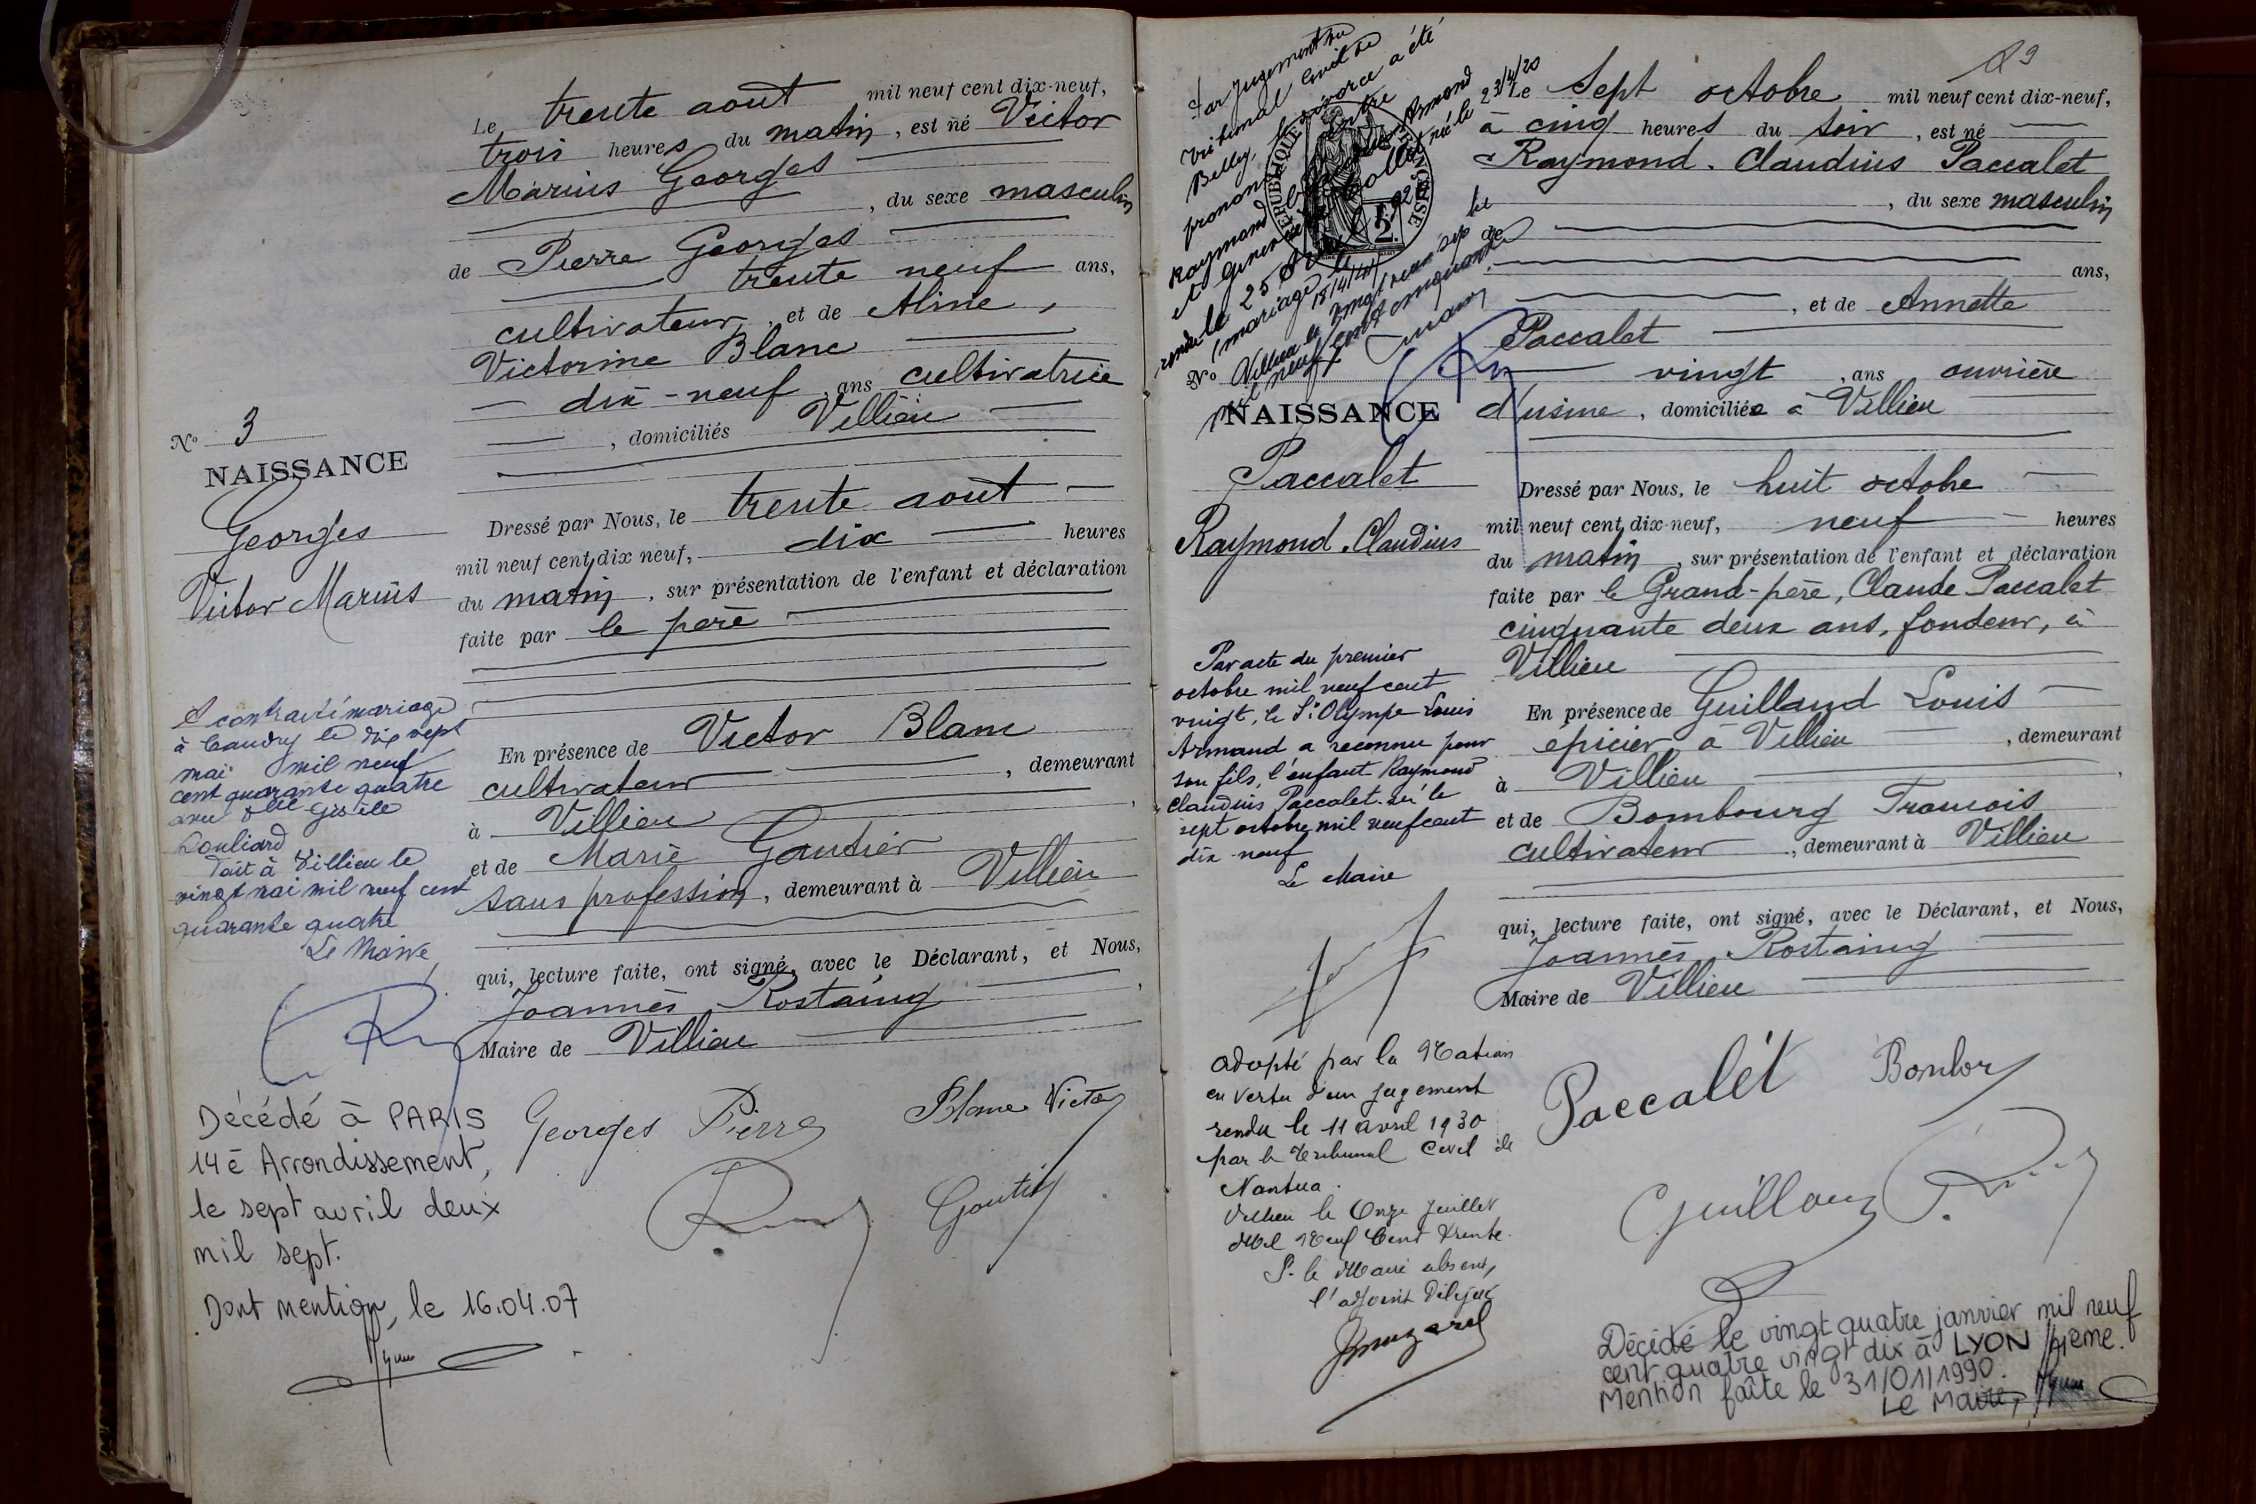 Le trente août mil neuf cent dix-neuf,
trois heures du matin, est né Victor
Marius Georges
, du sexe masculin
de Pierre Georges
trente neuf ans,
cultivateur, et de Aline,
Victorine Blanc
dix-neuf ans cultivatrice
, domiciliés Villieu
Nº 3
NAISSANCE
Georges
Victor Marius
Dressé par Nous, le trente août
mil neuf cent dix neuf, dix heures
du matin, sur présentation de l'enfant et déclaration
faite par le père
A contracté mariage
à Caudry le dix sept
mai mil neuf
cent quarante quatre
avec Dlle Gisèle
Fait à Villieu le
vingt mai mil neuf cent
quarante quatre
Le Maire
En présence de Victor Blanc
cultivateur, demeurant
à Villieu
et de Marie Gautier
sans profession, demeurant à Villieu
qui, lecture faite, ont signé, avec le Déclarant, et Nous,
Joannès Rostaing
Maire de Villieu
Georges Pierre Blanc Victor
Décédé à PARIS
14è Arrondissement,
le sept avril deux
mil sept.
Dont mention, le 16.04.07
89
Par Jugement du
Tribunal Civil de
Belley, le divorce a été
prononcé entre
Raymond Armand
et Collet née le 23/4/20
rendu le 25
(mariage le 18/4/40)
Villieu le
mil neuf cent cinquante
RÉPUBLIQUE FRANÇAISE
Le Sept octobre mil neuf cent dix-neuf,
à cinq heures du soir, est né
Raymond. Claudius Paccalet
, du sexe masculin
de
ans,
, et de Annette
Paccalet
vingt ans ouvrière
d'usine, domiciliée à Villieu
Nº
NAISSANCE
Paccalet
Raymond. Claudius
Dressé par Nous, le huit octobre
mil neuf cent dix-neuf, neuf heures
du matin, sur présentation de l'enfant et déclaration
faite par le Grand-père, Claude Paccalet
cinquante deux ans, fondeur, à
Villieu
Par acte du premier
octobre mil neuf cent
vingt, le Sr Olympe Louis
Armand a reconnu pour
son fils, l'enfant Raymond
Claudius Paccalet né le
sept octobre mil neuf cent
dix-neuf
Le Maire
En présence de Guilland Louis
épicier à Villieu, demeurant
à Villieu
et de Bombourg Francois
cultivateur, demeurant à Villieu
qui, lecture faite, ont signé, avec le Déclarant, et Nous,
Joannès Rostaing
Maire de Villieu
adopté par la Nation
en vertu d'un jugement
rendu le 11 avril 1930
par le Tribunal Civil de
Nantua.
Villieu le Onze Juillet
Mil Neuf Cent Trente.
P. le Maire absent,
l'adjoint
Paccalet
Décédé le vingt quatre janvier mil neuf
cent quatre vingt dix à LYON
Mention faîte le 31/01/1990.
Le Maire,